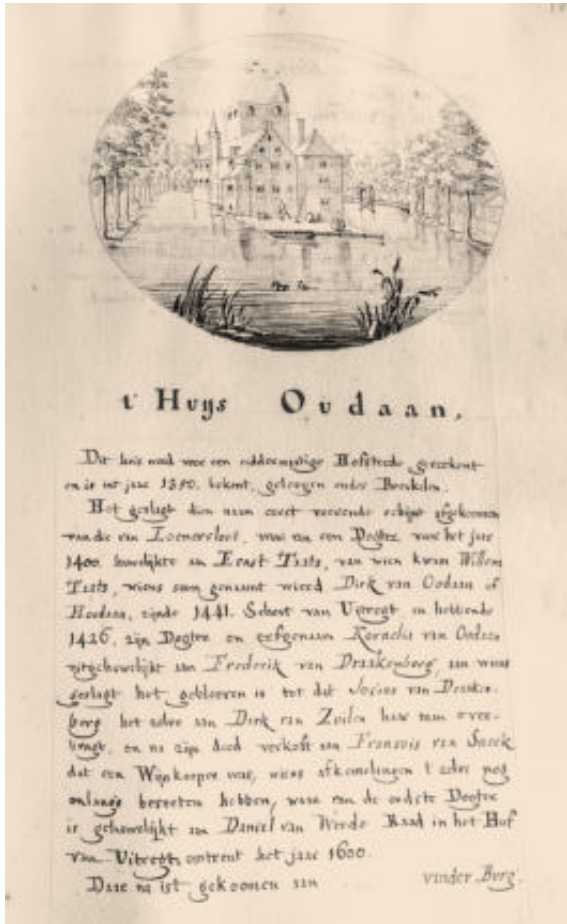 't Huys Oudaan.
Dit huis werd voor een riddermatige Hofstede gereekent
en is tot jaar 1390. bekent, gelegen onder Breukelen.
Het geslagt dien naam eerst voerende schijnt afgekoomen
van die van Loenersloot, waar van een Dogter voor het jaar
1400. houwelijkte an Ernst Taats, van wien kwam Willem
Taats, wiens soon genaamt wierd Dirk van Oudaan of
Houdaan, zijnde 1441. Schout van Utregt en hebbende
1426, zijn Dogter en erfgenaam Kornelia van Oudaan
uitgehouwelijkt aan Frederik van Draakenborg, aan wiens
geslagt het gebleeven is tot dat Josina van Draaken-
borg het zelve aan Dirk van Zuilen haar man over-
bragt, en na zijn dood verkoft aan Fransois van Snoek
dat een Wijnkooper was, wiens afkomelingen 't zelve nog
onlangs bezeeten hebben, waar van de oudste Dogter
is gehouwelijkt an Daniel van Weede Raad in het Hof
van Uitregt omtrent het jaar 1600.
Daar na ist gekoomen aan vander Burg.